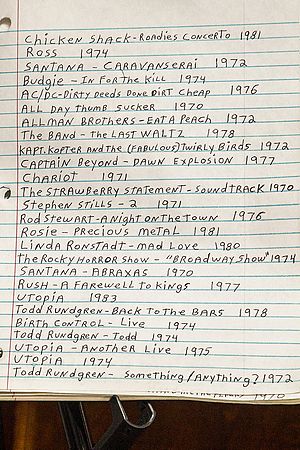 Chicken Shack - Roadies Concerto 1981
Ross 1974
Santana - Caravanserai 1972
Budgie - In For the Kill 1974
AC/DC - Dirty Deeds Done Dirt Cheap 1976
All Day Thumb Sucker 1970
Allman Brothers - Eat A Peach 1972
The Band - The Last Waltz 1978
Kapt. Kopter and the (Fabulous) Twirly Birds 1972
Captain Beyond - Dawn Explosion 1977
Chariot 1971
The Strawberry Statement - Soundtrack 1970
Stephen Stills - 2 1971
Rod Stewart - A Night on the Town 1976
Rosie - Precious Metal 1981
Linda Ronstadt - Mad Love 1980
The Rocky Horror Show - "Broadway Show" 1974
Santana - Abraxas 1970
Rush - A Farewell to Kings 1977
Utopia 1983
Todd Rundgren - Back To The Bars 1978
Birth Control - Live 1974
Todd Rundgren - Todd 1974
Utopia - Another Live 1975
Utopia 1974
Todd Rundgren - Something/Anything? 1972
1970